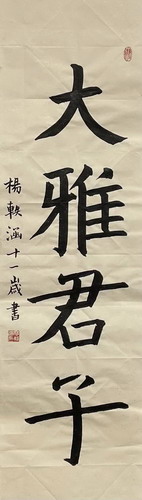 大雅君子
楊軼涵十一歲書